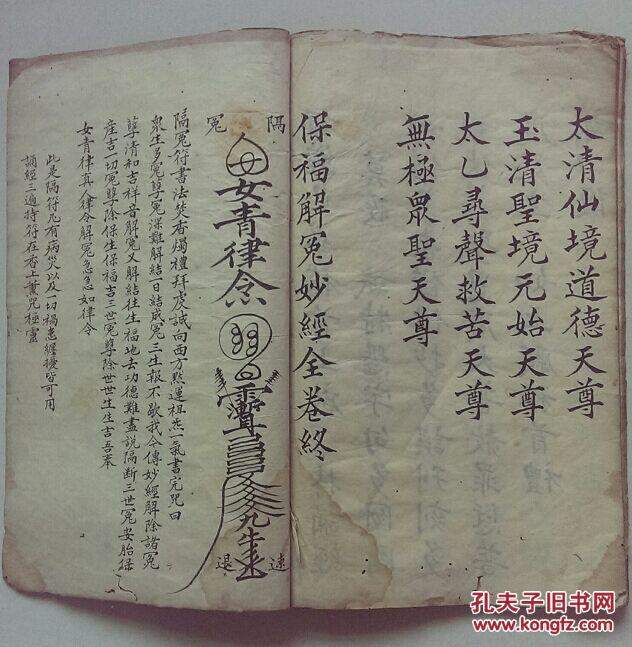 太清仙境道德天尊
玉清聖境元始天尊
太乙尋聲救苦天尊
無極眾聖天尊
保福解冤妙經全卷終
隔
冤
女青律令
速
退
隔冤符書法焚香燭禮拜虔誠向西方默運祖炁一氣書完咒曰
眾生多冤孽冤深難解結一日結成冤三生報不歇我今傳妙經解除諸冤
孽清和吉祥音解冤又解結往生福地去功德難盡說隔斷三世冤安胎保
產吉一切冤孽除保生保福吉三世冤孽除世世生生吉吾奉
女青律真人律令解冤急急如律令
此是隔符凡有病災以及一切禍患纏擾皆可用
誦經三遍持符在香上薰咒極靈
孔夫子旧书网
www.kongfz.com